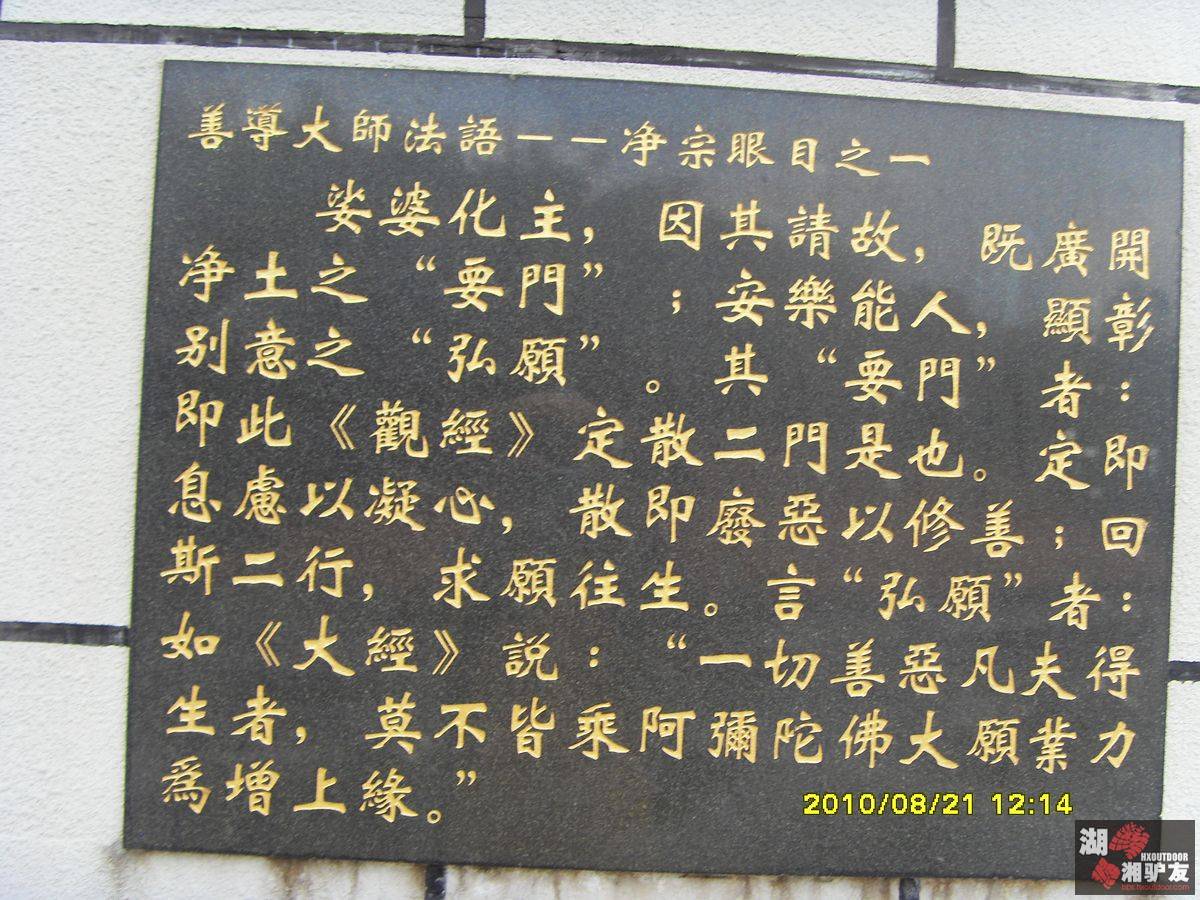 善導大師法語－－净宗眼目之一
娑婆化主，因其請故，既廣開
净土之“要門”；安樂能人，顯彰
别意之“弘願”。其“要門”者：
即此《觀經》定散二門是也。定即
息慮以凝心，散即廢惡以修善；回
斯二行，求願往生。言“弘願”者：
如《大經》説：“一切善惡凡夫得
生者，莫不皆乘阿彌陀佛大願業力
爲增上緣。”
2010/08/21 12:14
湖
HXOUTDOOR
湘驴友
bbs.hxoutdoor.com